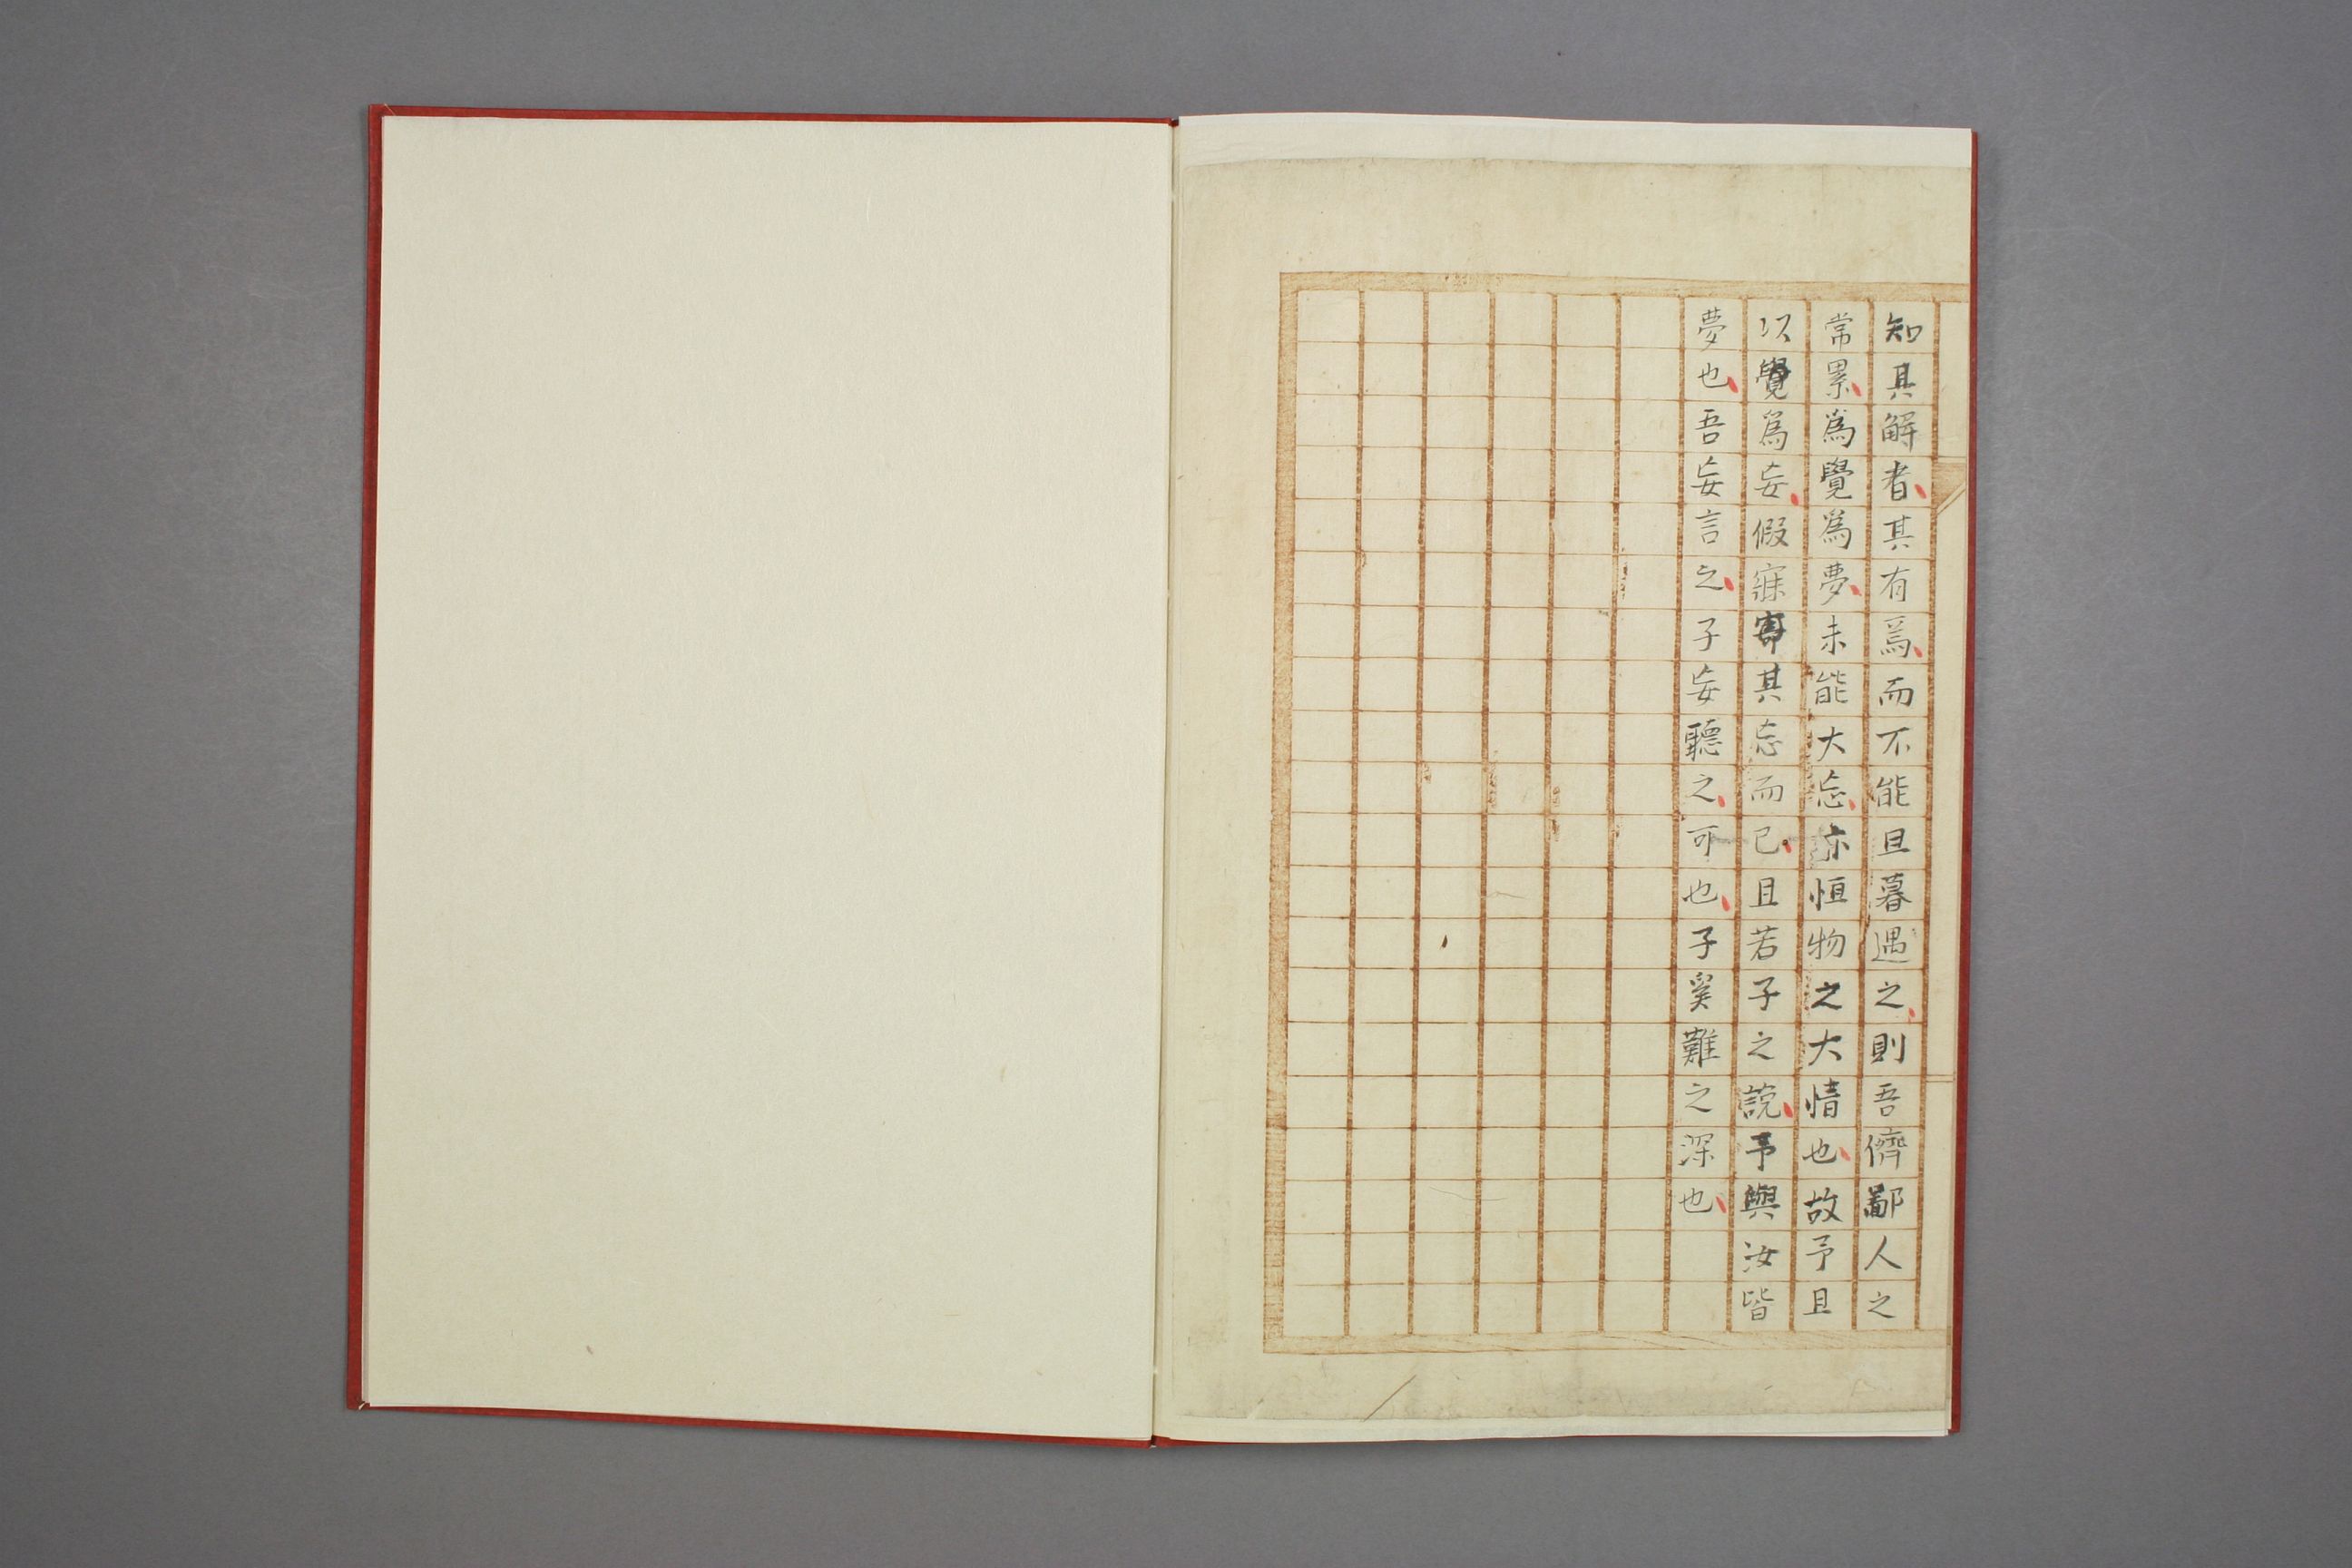 知其解者、其有焉、而不能旦暮遇之、則吾儕鄙人之
常累、為覺為夢、未能大忘、亦恒物之大情也、故予且
以覺為妄、假寐寄其忘而已、且若子之說、予與汝皆
夢也、吾妄言之、子妄聽之、可也、子奚難之深也、